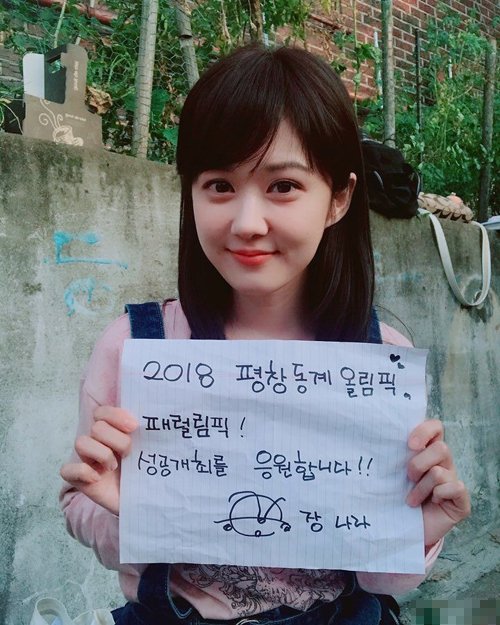 2018 평창동계 올림픽
패럴림픽!
성공개최를 응원합니다!!
장 나라